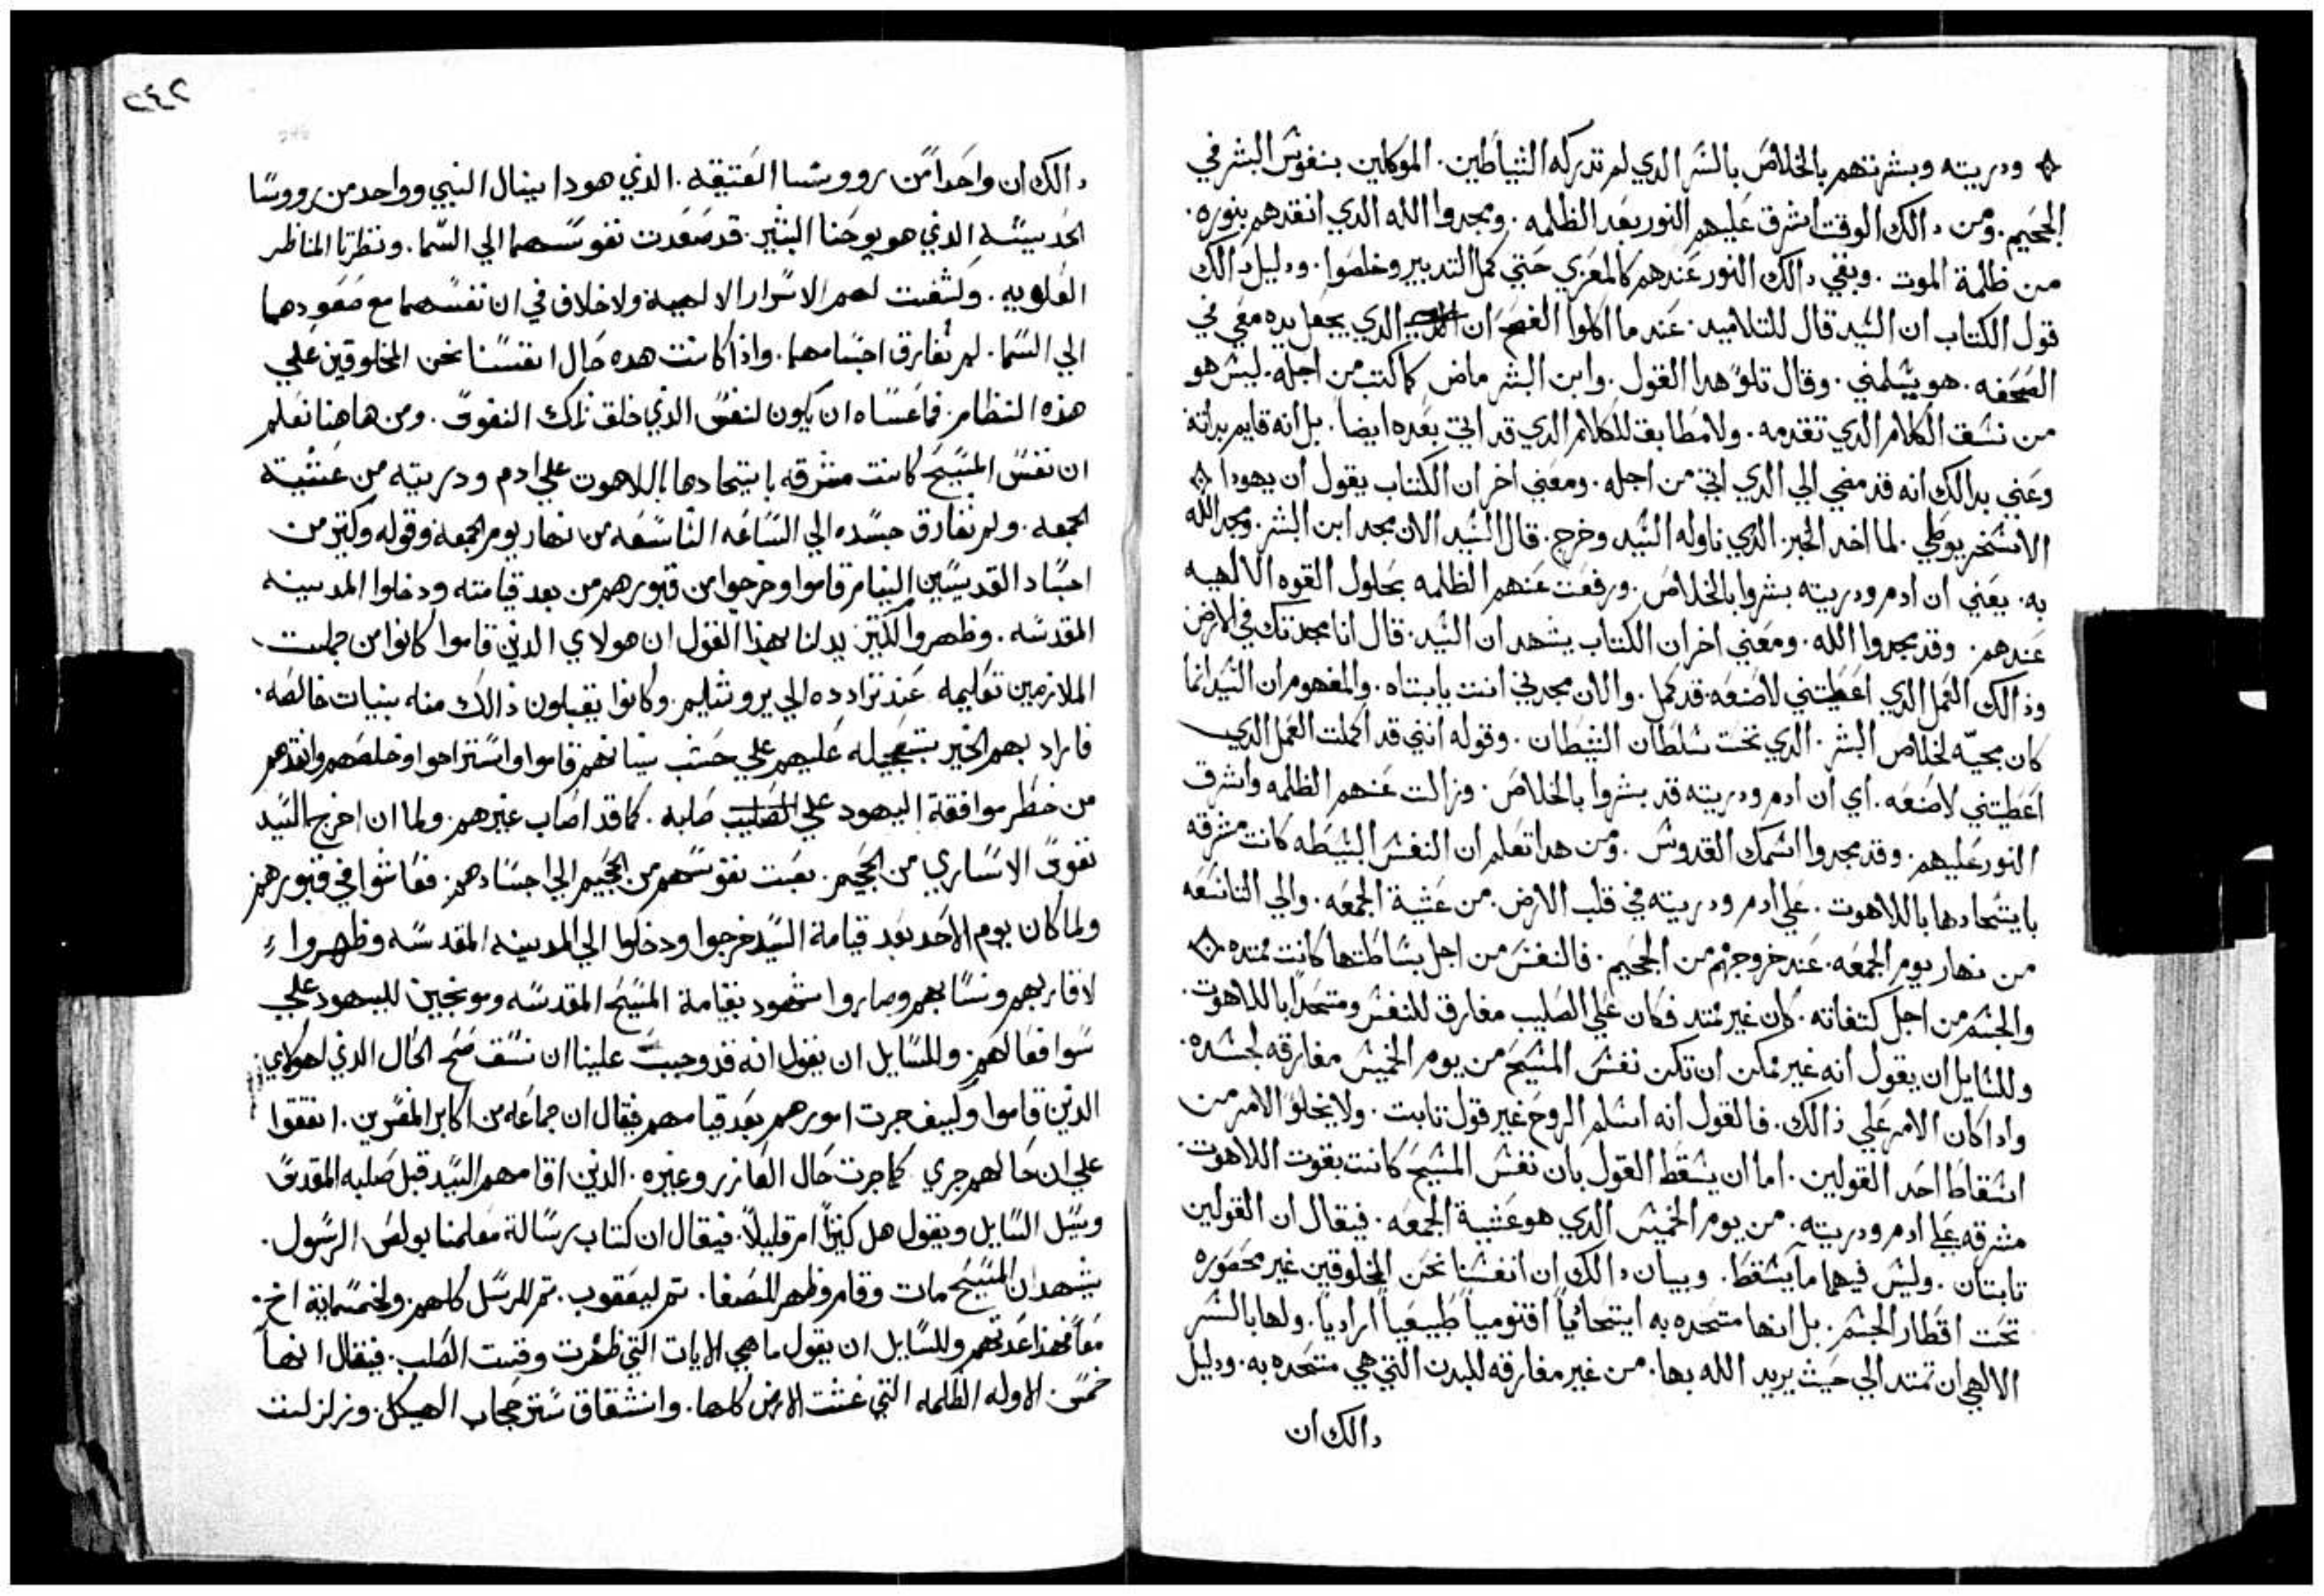 ودريته وبشرتهم بالخلاص بالسر الدي لم تدركه الشياطين. الموكلين بنفوس البشر في
الجحيم. ومن دالك الوقت اشرق عليهم النور بعد الظلمه. ومجدوا الله الدي انقدهم بنوره.
من ظلمة الموت. وبقي دالك النور عندهم كالمعزي حتي كمل التدبير وخلصوا. ودليل دالك
قول الكتاب ان السيد قال للتلاميد. عند ما اكلوا الفصح ان الدي يجعل يده معي في
الصحفه. هو يسلمني. وقال تلوّ هدا القول. وابن البشر ماض كما كتب من اجله. ليس هو
من نسق الكلام الدي تقدمه. ولا مطابق للكلام الدي قد اتي بعده ايضاً. بل انه قايم بداته
وعني بدالك انه قد مضي الي الدي اتي من اجله. ومعني اخر ان الكتاب يقول ان يهودا
الاسخريوطي. لما اخد الخبز الدي ناوله السيد وخرج. قال السيد الان مجد ابن البشر. ومجد الله
به. يعني ان ادم ودريته بشروا بالخلاص. ورفعت عنهم الظلمه بحلول القوه الالهيه
عندهم. وقد مجدوا الله. ومعني اخر ان الكتاب يشهد ان السيد. قال انا مجدتك في الارض
وذالك العمل الدي اعطيتني لاصنعه قد كمل. والان مجدني انت يا ابتاه. والمفهوم ان السيد انما
كان مجيّه لخلاص البشر. الدي تحت سلطان الشيطان. وقوله انني قد اكملت العمل الدي
اعطيتني لاصنعه. اي ان ادم ودريته قد بشروا بالخلاص. وزالت عنهم الظلمه واشرق
النور عليهم. وقد مجدوا اسمك القدوس. ومن هدا تعلم ان النفس البسيطه كانت مشرقه
بايتحادها باللاهوت. علي ادم ودريته في قلب الارض. من عشية الجمعه. والي التاسعه
من نهار يوم الجمعه. عند خروجهم من الجحيم. فالنفس من اجل بساطتها كانت ممتده
والجسم من اجل كتفاته. كان غير ممتد فكان علي الصليب مفارق للنفس ومتحداً باللاهوت.
وللسايل ان يقول انه غير ممكن ان تكن نفس المسيح من يوم الخميس مفارقه لجسده.
وادا كان الامر علي ذالك. فالقول انه اسلم الروح غير قول تابت. ولا يخلوا الامر من
اسقاط احد القولين. اما ان يسقط القول بان نفس المسيح كانت بقوت اللاهوت.
مشرقه علي ادم ودريته. من يوم الخميس الدي هو عشية الجمعه. فيقال ان القولين
تابتان. وليس فيهما ما يسقط. وبيان دالك ان انفسنا نحن المخلوقين غير محصوره
تحت اقطار الجسم. بل انها متحده به ايتحاداً اقنومياً طبيعياً ارادياً. ولها بالسر
الالهي ان تمتد الي حيث يريد الله بها. من غير مفارقه للبدن التي هي متحده به. ودليل
دالك ان
٢٤٢
دالك ان واحداً من رووسا العتيقه. الذي هو دانيال النبي وواحد من رووسا
الحديثه الذي هو يوحنا البشير. قد صعدت نفوسهما الي السما. ونظرتا المناظر
العلويه. وكشفت لهم الاسرار الالهية ولا خلاف في ان نفسهما مع صعودهما
الي السما. لم تفارق اجسامهما. واذا كانت هده حال انفسنا نحن المخلوقين علي
هذه النظام. فما عساه ان يكون لنفس الذي خلق تلك النفوس. ومن هاهنا نعلم
ان نفس المسيح كانت مشرقه بايتحادها باللاهوت علي ادم ودريته من عشية
الجمعه. ولم تفارق جسده الي الساعه التاسعه من نهار يوم الجمعة وقوله وكتير من
اجساد القديسين النيام قاموا وخرجوا من قبورهم من بعد قيامته ودخلوا المدينه
المقدسه. وظهروا لكتير يدلنا بهذا القول ان هولاي الدين قاموا كانوا من جملت
الملازمين تعليمه عند ترادده الي يروشليم. وكانوا يقبلون ذالك منه بنيات خالصه.
فاراد بهم الخير بتعجيله عليهم علي حسب نياتهم قاموا واستراحوا وخلصهم وانقدهم
من خطر موافقة اليهود علي الصليب صلبه. كما قد اصاب غيرهم. ولما ان اخرج السيد
نفوس الاساري من الجحيم. بعت نفوسهم من الجحيم الي اجسادهم. فعاشوا في قبورهم
ولما كان يوم الاحد بعد قيامة السيد خرجوا ودخلوا الي المدينه المقدسه وظهروا
لاقاربهم ونسابهم وصاروا شهود بقيامة المسيح المقدسه وموبخين لليهود علي
سوا فعالهم. وللسايل ان يقول انه قد وجبت علينا ان نسق صح الحال الذي لهولاي
الدين قاموا وكييف جرت امورهم بعد قيامهم فيقال ان جماعه من اكابر المفسرين. اتفقوا
علي ان حالهم جري كما جرت حال العازر وغيره. الدين اقامهم السيد قبل صلبه المقدس
ويسل السايل ويقول هل كتيراً ام قليلاً. فيقال ان كتاب رسالة معلمنا بولص الرسول.
يشهد ان المسيح مات وقام وظهر للصفا. تم ليعقوب. تم للرسل كلهم. ولخمسماية اخ.
معاً فهذا عدتهم وللسايل ان يقول ما هي الايات التي ظهرت وقت الصلب. فيقال انها
خمس. الاوله الظلمه التي غشت الارض كلها. وانشقاق ستر حجاب الهيكل. وزلزلت